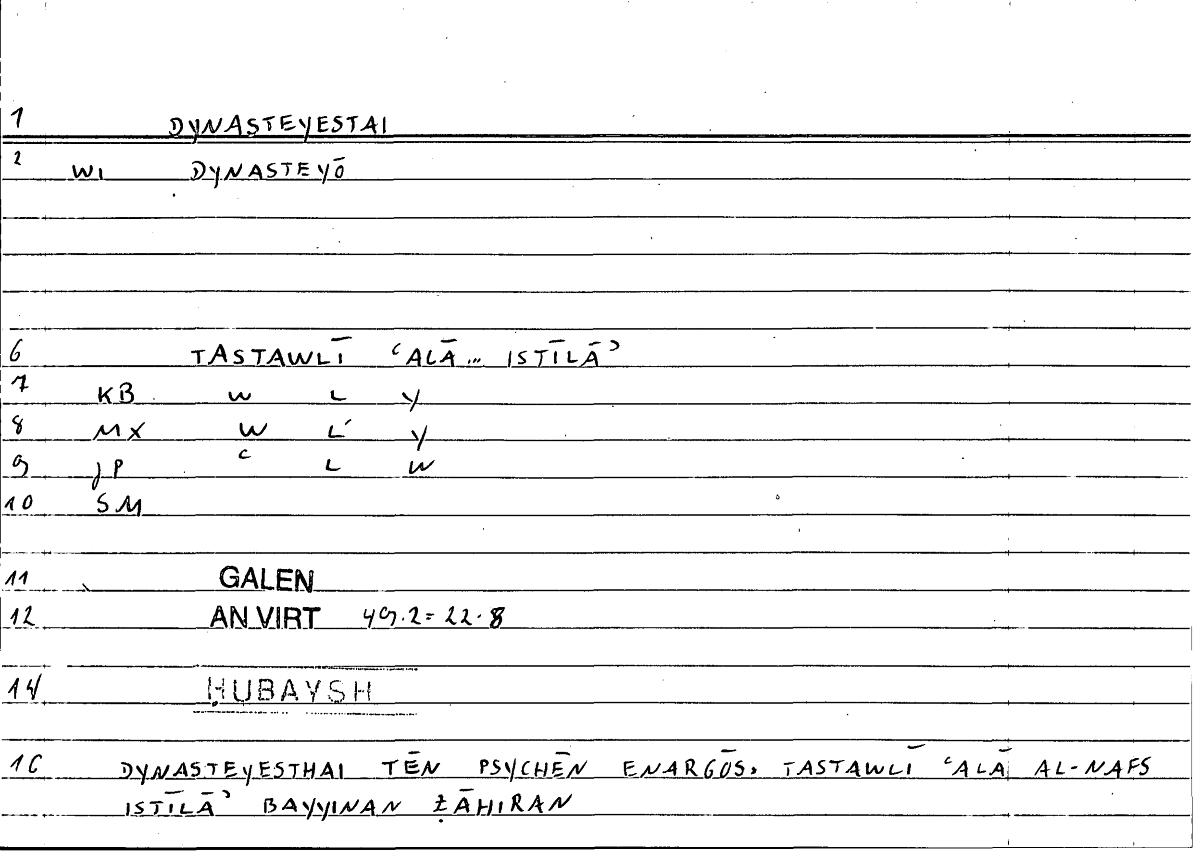 1 DYNASTEYESTAI
2 WI DYNASTEYŌ
6 TASTAWLĪ ʿALĀ... ISTĪLĀʾ
7 KB W L Y
8 MX W L Y
9 JP ʿ L W
10 SM
11 GALEN
12 AN VIRT 49.2 = 22.8
14 ḤUBAYSH
16 DYNASTEYESTHAI TĒN PSYCHĒN ENARGŌS: TASTAWLĪ ʿALĀ AL-NAFS
ISTĪLĀʾ BAYYINAN ẒĀHIRAN